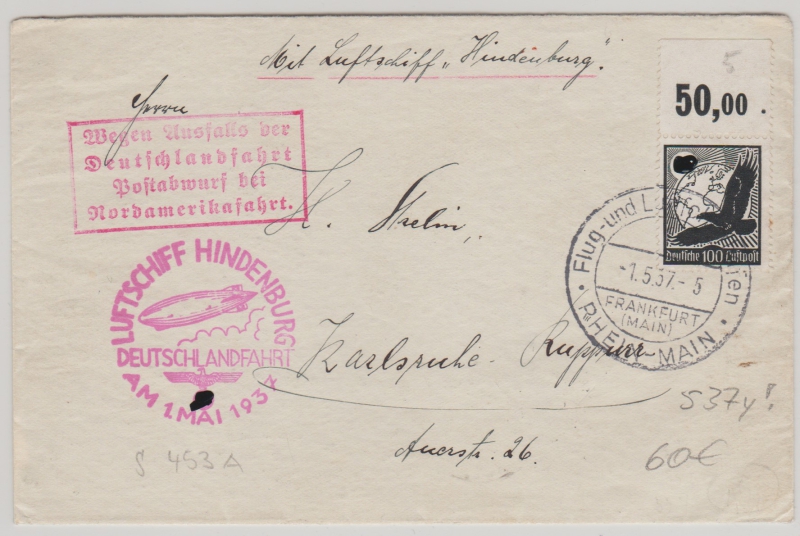 Mit Luftschiff „Hindenburg".
5
50,00 .
Herrn
Wegen Ausfalls der
Deutschlandfahrt
Postabwurf bei
Nordamerikafahrt.
Deutsche 100 Luftpost
Flug- und Luftschiffhafen
-1.5.37.-5
FRANKFURT
(MAIN)
RHEIN-MAIN
LUFTSCHIFF HINDENBURG
DEUTSCHLANDFAHRT
AM 1. MAI 1937
Karlsruhe-Ruppurr
Auerstr. 26.
S 37y!
§ 453 A
60€